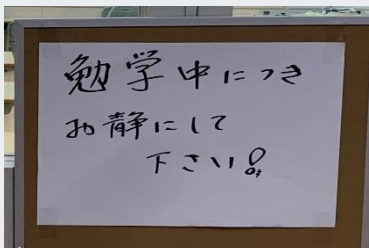 勉学中につき
お静にして
下さい!